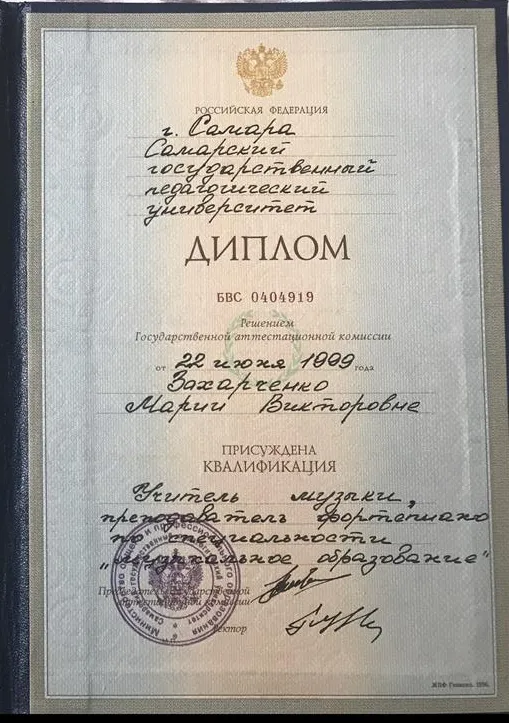 РОССИЙСКАЯ ФЕДЕРАЦИЯ
г. Самара
Самарский
государственный
педагогический
университет
ДИПЛОМ
БВС 0404919
Решением
Государственной аттестационной комиссии
от 22 июня 1999 года
Захарченко
Марии Викторовне
ПРИСУЖДЕНА
КВАЛИФИКАЦИЯ
Учитель музыки,
преподаватель фортепиано
по специальности
„музыкальное образование"
Председатель Государственной
аттестационной комиссии
Ректор
Министерство общего и профессионального образования